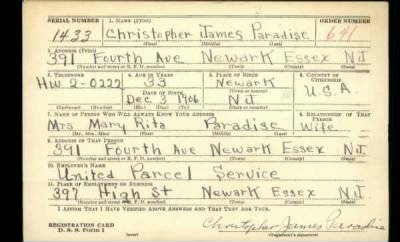 SERIAL NUMBER 1. NAME (Print) ORDER NUMBER
1433 Christopher James Paradise 641
(First) (Middle) (Last)
2. ADDRESS (Print)
391 Fourth Ave Newark Essex NJ
(Number and street or R. F. D. number) (Town) (County) (State)
3. TELEPHONE 4. AGE IN YEARS 5. PLACE OF BIRTH 6. COUNTRY OF CITIZENSHIP
HW 2-0222 33 Newark
DATE OF BIRTH (Town or county) U.S.A.
Dec 3 1906 NJ
(Exchange) (Number) (Mo.) (Day) (Yr.) (State or country)
7. NAME OF PERSON WHO WILL ALWAYS KNOW YOUR ADDRESS 8. RELATIONSHIP OF THAT PERSON
Mrs Mary Rita Paradise Wife
(Mr., Mrs., Miss) (First) (Middle) (Last)
9. ADDRESS OF THAT PERSON
391 Fourth Ave Newark Essex NJ
(Number and street or R. F. D. number) (Town) (County) (State)
10. EMPLOYER'S NAME
United Parcel Service
11. PLACE OF EMPLOYMENT OR BUSINESS
397 High St Newark Essex NJ
(Number and street or R. F. D. number) (Town) (County) (State)
I AFFIRM THAT I HAVE VERIFIED ABOVE ANSWERS AND THAT THEY ARE TRUE.
REGISTRATION CARD Christopher James Paradise
D. S. S. Form 1 (over) (Registrant's signature)